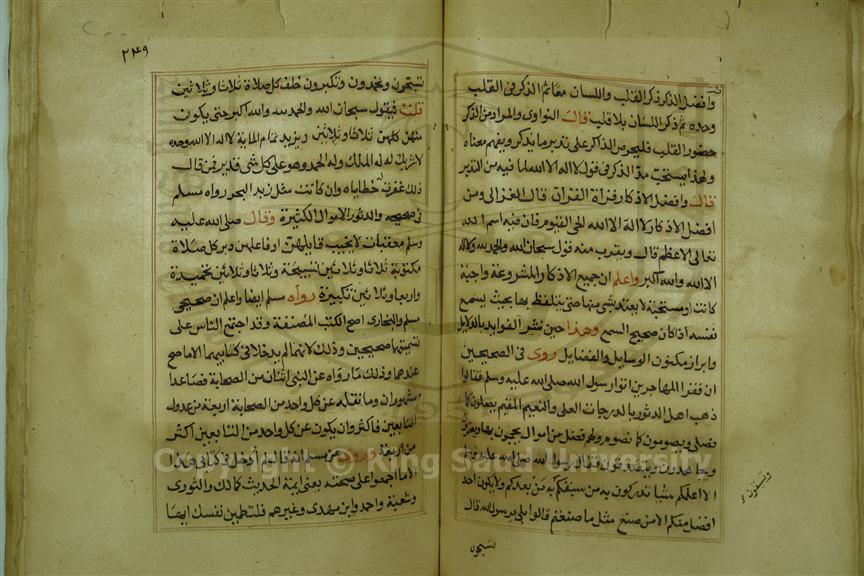 وافضل الذكر ذكر القلب واللسان معا ثم الذكر فى القلب
وحده ثم ذكر اللسان بلا قلب قال النواوى والمراد من الذكر
حضور القلب فليحرص الذاكر على تدبر ما يذكر ويفهم معناه
ولهذا يستحب مد الذكر فى قول لا اله الا الله لما فيه من التدبر
قال وافضل الاذكار قراة القران قال الغزالى ومن
افضل الاذكار لا اله الا الله الحى القيوم فان فيه اسم الله
تعالى الاعظم قال ويقرب منه قول سبحان الله والحمد لله ولا اله
الا الله والله اكبر واعلم ان جميع الاذكار المشروعة واجبة
كانت او مستحبة لا يعتد بشى منها حتى يتلفظ بها بحيث يسمع
نفسه اذا كان صحيح السمع وهذا حين نشر الفوايد بالدلايل
وابراز مكنون الوسايل والفضايل روى فى الصحيحين
ان فقرا المهاجرين اتوا رسول الله صلى الله عليه وسلم فقالوا
ذهب اهل الدثور بالدرجات العلى والنعيم المقيم يصلون كما
نصلى ويصومون كما نصوم ولهم فضل من اموال يحجون بها
ويجاهدون ويتصدقون فقال رسول الله صلى الله عليه وسلم
الا اعلمكم شيئا تدركون به من سبقكم به من بعدكم ولا يكون احد
افضل منكم الا من صنع مثل ما صنعتم قالوا بلى يرسول الله قال
تسبحون
٢٤٩
تسبحون وتحمدون وتكبرون خلف كل صلاة ثلاثا وثلاثين
قلت فيقول سبحان الله والحمد لله والله اكبر حتى يكون
منهن كلهن ثلاثا وثلاثين ويزيد تمام الماية لا اله الا الله وحده
لا شريك له له الملك وله الحمد وهو على كل شى قدير فمن قال
ذلك غفرت له خطاياه وان كانت مثل زبد البحر رواه مسلم
فى صحيحه والدثور الاموال الكثيرة وقال صلى الله عليه
وسلم معقبات لا يخيب قايلهن او فاعلهن دبر كل صلاة
مكتوبة ثلاثا وثلاثين تسبيحة وثلاثا وثلاثين تحميدة
واربعا وثلاثين تكبيرة رواه مسلم ايضا واعلم ان صحيحى
مسلم والبخارى اصح الكتب المصنفة وقد اجتمع الناس على
تسميتهما صحيحين وذلك لانهما لم يدخلا فى كتابيهما الا ما صح
عندهما وذلك ما رواه عن النبى اثنان من الصحابة فصاعدا
مشهوران وما نقله عن كل واحد من الصحابة اربعة من عدول
التابعين فاكثر وان يكون عن كل واحد من التابعين اكثر
من اربعة وروى عن مسلم انه قال لم ادخل فى كتابى هذا
الا ما اجمعوا على صحته يعنى ايمة الحديث كمالك والثورى
وشعبة واحمد وابن مهدى وغيرهم فلتطبن نفسك ايضا
Copyright © King Saud University